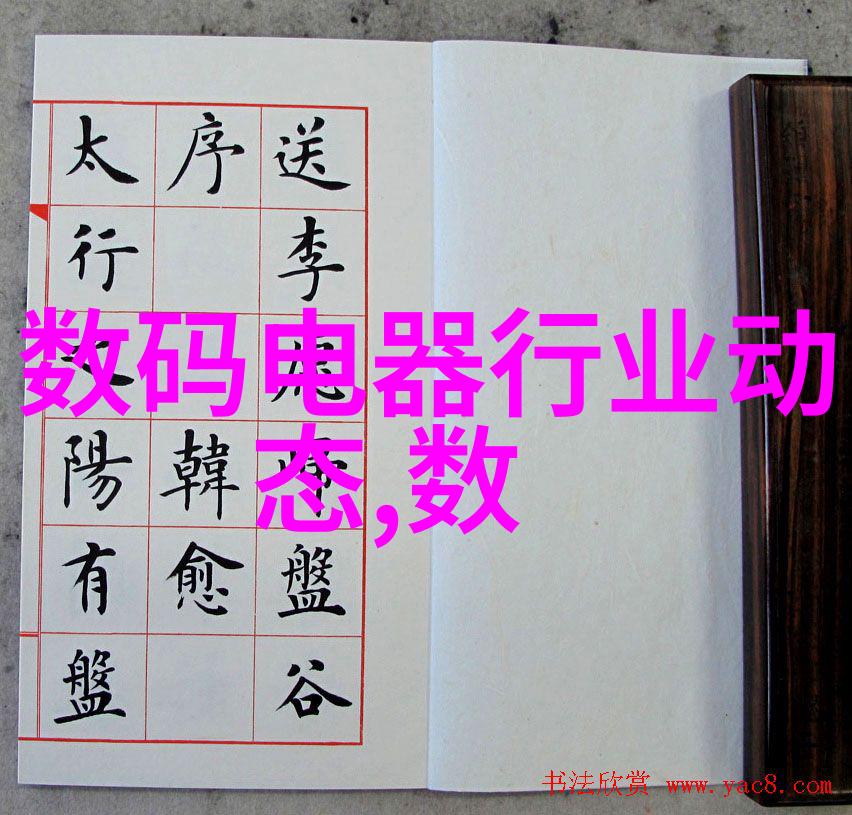 送李盤谷
序韓愈
太行陽有盤
数码电器行业动
态,数
书法欣赏 www.yac8.com